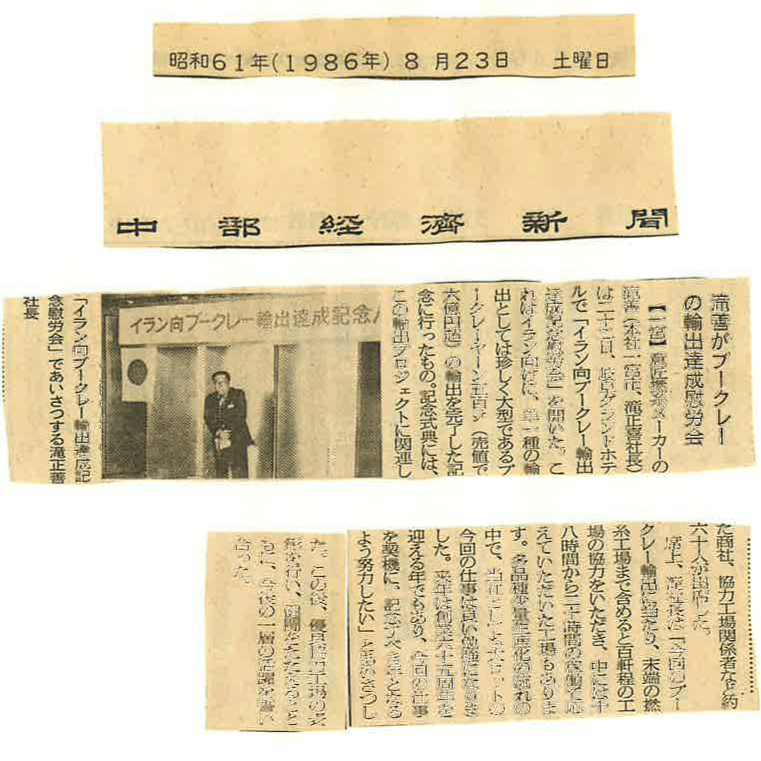 昭和61年(1986年) 8月23日 土曜日
中部経済新聞
滝善がブークレー
の輸出達成慰労会
【一宮】意匠撚糸メーカーの
滝善(本社一宮市、滝正喜社長)
は二十二日、岐阜グランドホテ
ルで「イラン向ブークレー輸出
達成記念慰労会」を開いた。こ
れはイラン向けに、単一種の輸
出としては珍しく大型であるブ
ークレーヤーン五百㌧(売値で
六億円超)の輸出を完了した記
念に行ったもの。記念式典には、
この輸出プロジェクトに関連し
イラン向ブークレー輸出達成記念
「イラン向ブークレー輸出達成記
念慰労会」であいさつする滝正喜
社長
た商社、協力工場関係者など約
六十人が出席した。
席上、滝社長は「今回のブー
クレー輸出に当たり、末端の撚
糸工場まで含めると百軒程の工
場の協力をいただき、中には十
八時間から二十時間の稼働で応
えていただいた工場もありま
す。多品種少量生産化の流れの
中で、当社としても大ロットの
今回の仕事は良い勉強になりま
した。来年は創業六十五周年を
迎える年でもあり、今回の仕事
を契機に、記念すべき年となる
よう努力したい」とあいさつし
た。この後、優良協力工場の表
彰を行い、健闘をたたえるとと
もに、今後の一層の活躍を誓い
合った。